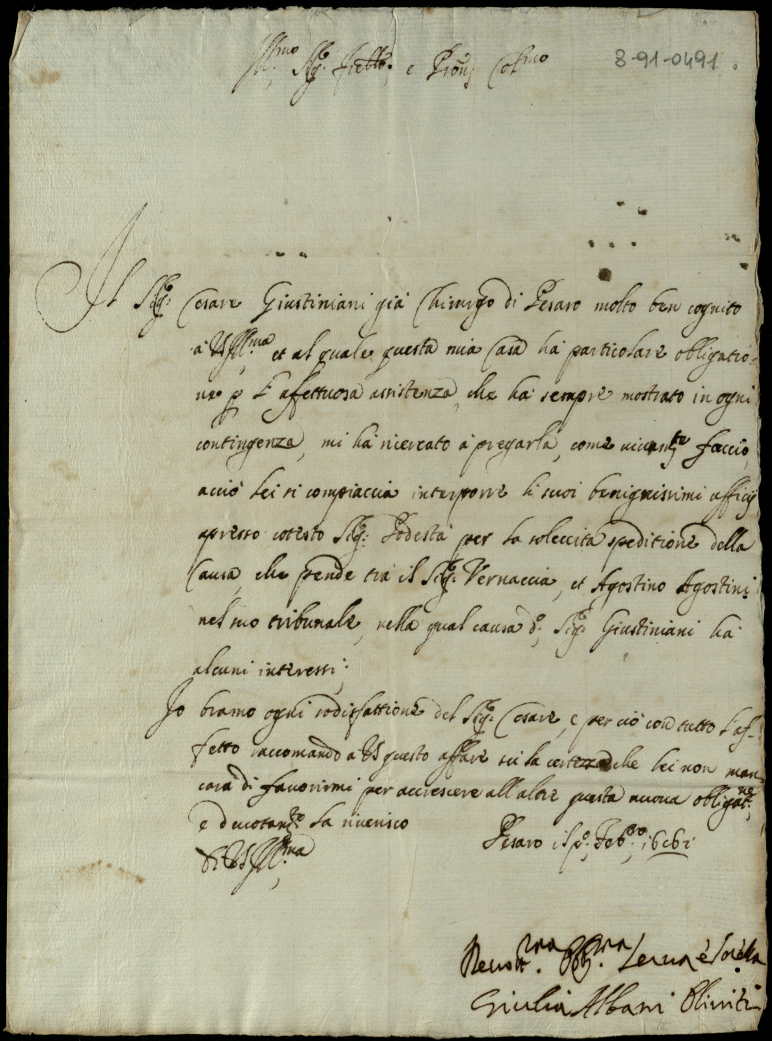 8-91-0491.
Ill.mo Sig.r Fratello, e Pron Col.mo
Il Sig.r Cesare Giustiniani già Chirurgo di Pesaro molto ben cognito
à VS Ill.ma et al quale questa mia Casa hà particolare obligatio-
ne p l'afettuosa assistenza, che hà sempre mostrato in ogni
contingenza, mi hà ricercato à pregarla, come vivam.te faccio,
acciò lei si compiaccia interporre li suoi benignissimi afficij
apresso cotesto Sig.r Podestà per la soleccita speditione della
Causa, che pende trà il Sig.r Vernaccia, et Agostino Agostini
nel suo tribunale, nella qual causa d.o Sig.r Giustiniani hà
alcuni interessi;
Io bramo ogni sodisfattione del Sig.r Cesare, e per ciò con tutto l'af-
fetto raccomando a VS questo affare sù la certezza che lei non man
carà di favorirmi per accrescere all'altre questa nuova obligat.ne
e devotam.te la riverisco
Di VS Ill.ma
Pesaro il p.o Feb.ro 1661
Devot.ma Obl.ma Serva e Sorella
Giulia Albani Olivieri